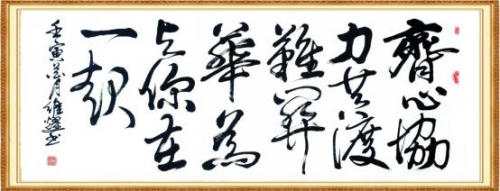 齊心協
力共渡
難關
華為
与你在
一起
壬寅月維書